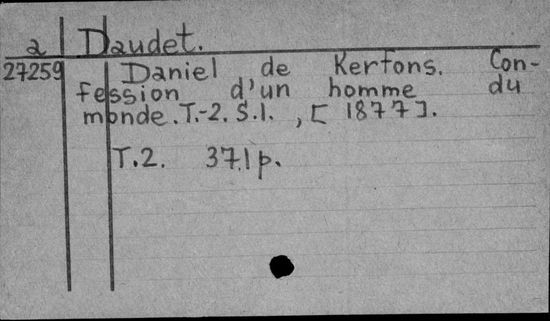 a Daudet.
27259 Daniel de Kerfons. Con-
fession d'un homme du
monde. T.-2. S.l. , [1877].
T.2. 371 p.